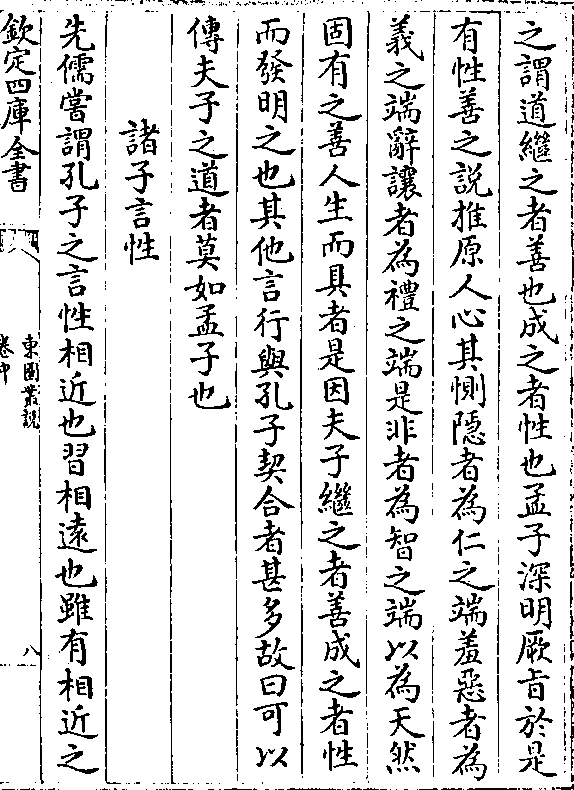 之謂道繼之者善也成之者性也孟子深明厥旨於是
有性善之說推原人心其惻隱者為仁之端羞惡者為
義之端辭讓者為禮之端是非者為智之端以為天然
固有之善人生而具者是因夫子繼之者善成之者性
而發明之也其他言行與孔子契合者甚多故曰可以
傳夫子之道者莫如孟子也
諸子言性
先儒嘗謂孔子之言性相近也習相遠也雖有相近之
欽定四庫全書
東園叢說
卷中
八